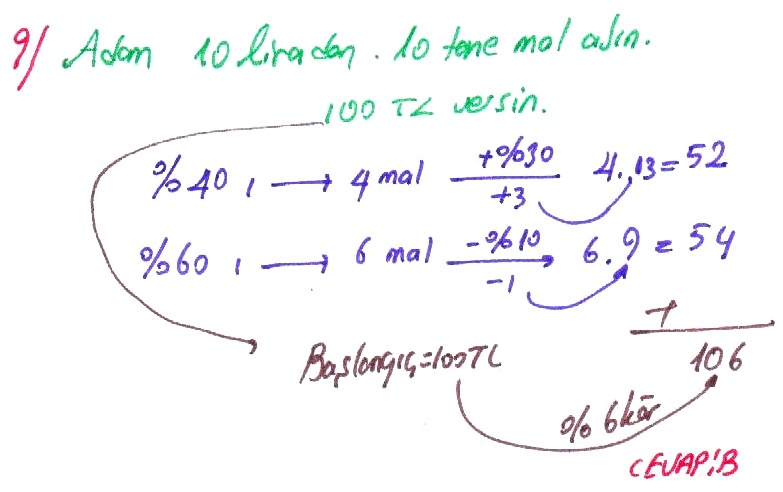 9/ Adam 10 liradan. 10 tane mal alsın.
100 TL versin.
%40 ı → 4 mal +%30 +3 4.13=52
%60 ı → 6 mal -%10 -1 6.9=54
+
106
Başlangıç=100TL
%6 kâr
CEVAP:B